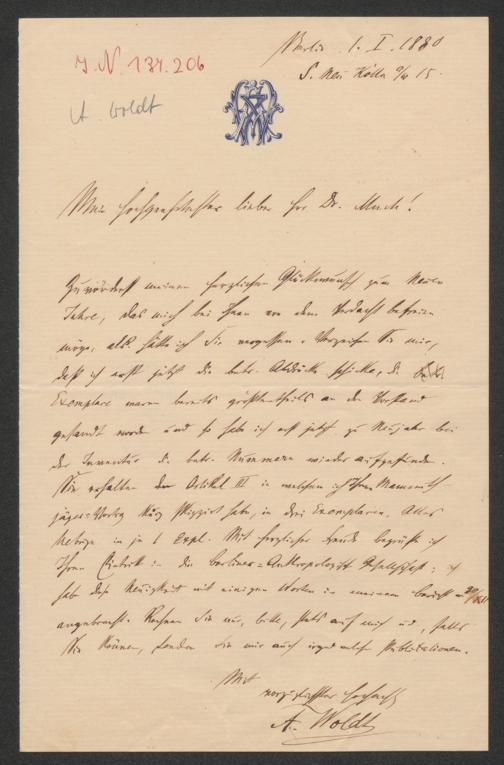 Berlin. 1. I. 1880
S. Neu Kölln a/W 15.
J. N. 134.206
A. Woldt
Mein hochgeschätzter lieber Herr Dr. Much!
Zuvörderst meinen herzlichen Glückwunsch zum Neuen
Jahre, das mich bei Ihnen von dem Verdacht befreien
möge, als hätte ich Sie vergessen. Verzeihen Sie mir,
daß ich erst jetzt die betr. Abdrücke schicke, d.
Exemplare waren bereits größtentheils an die Vorstand
gesandt worden und so habe ich erst jetzt zu Neujahr bei
der Inventur d. betr. Nummern wieder aufgefunden.
Sie erhalten den Artikel III in welchem ich Ihren Mammuth-
jäger-Vortrag kurz skizzirt habe, in drei Exemplaren. Alles
Uebrige in je 1 Expl. Mit herzlicher Freude begrüße ich
Ihren Eintritt in die Berliner-Anthropologische Gesellschaft; ich
habe diese Neuigkeit mit einigen Worten in meinem Bericht
angebracht. Rechnen Sie nur, bitte, stets auf mich und, falls
Sie können, senden Sie mir auch Publikationen.
Mit
vorzüglichster Hochach
A. Woldt